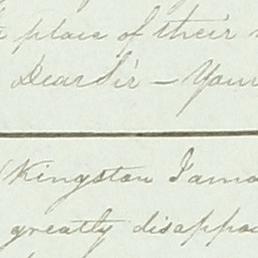 place of their
Dear Sir - Your
(Kingston Jama
greatly disappo